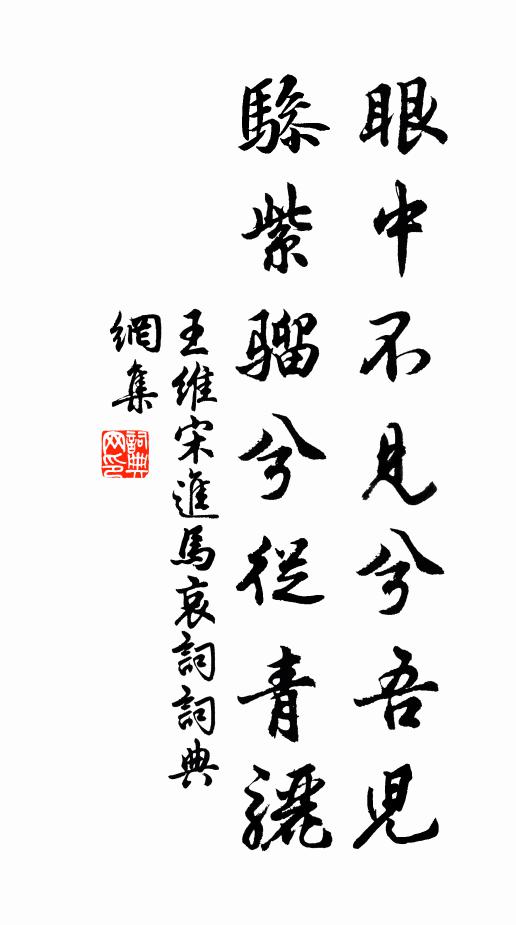 眼中不見兮吾兒
驂紫騮兮從青驪
王維宋進馬哀詞詞典
網集
詞典
网印